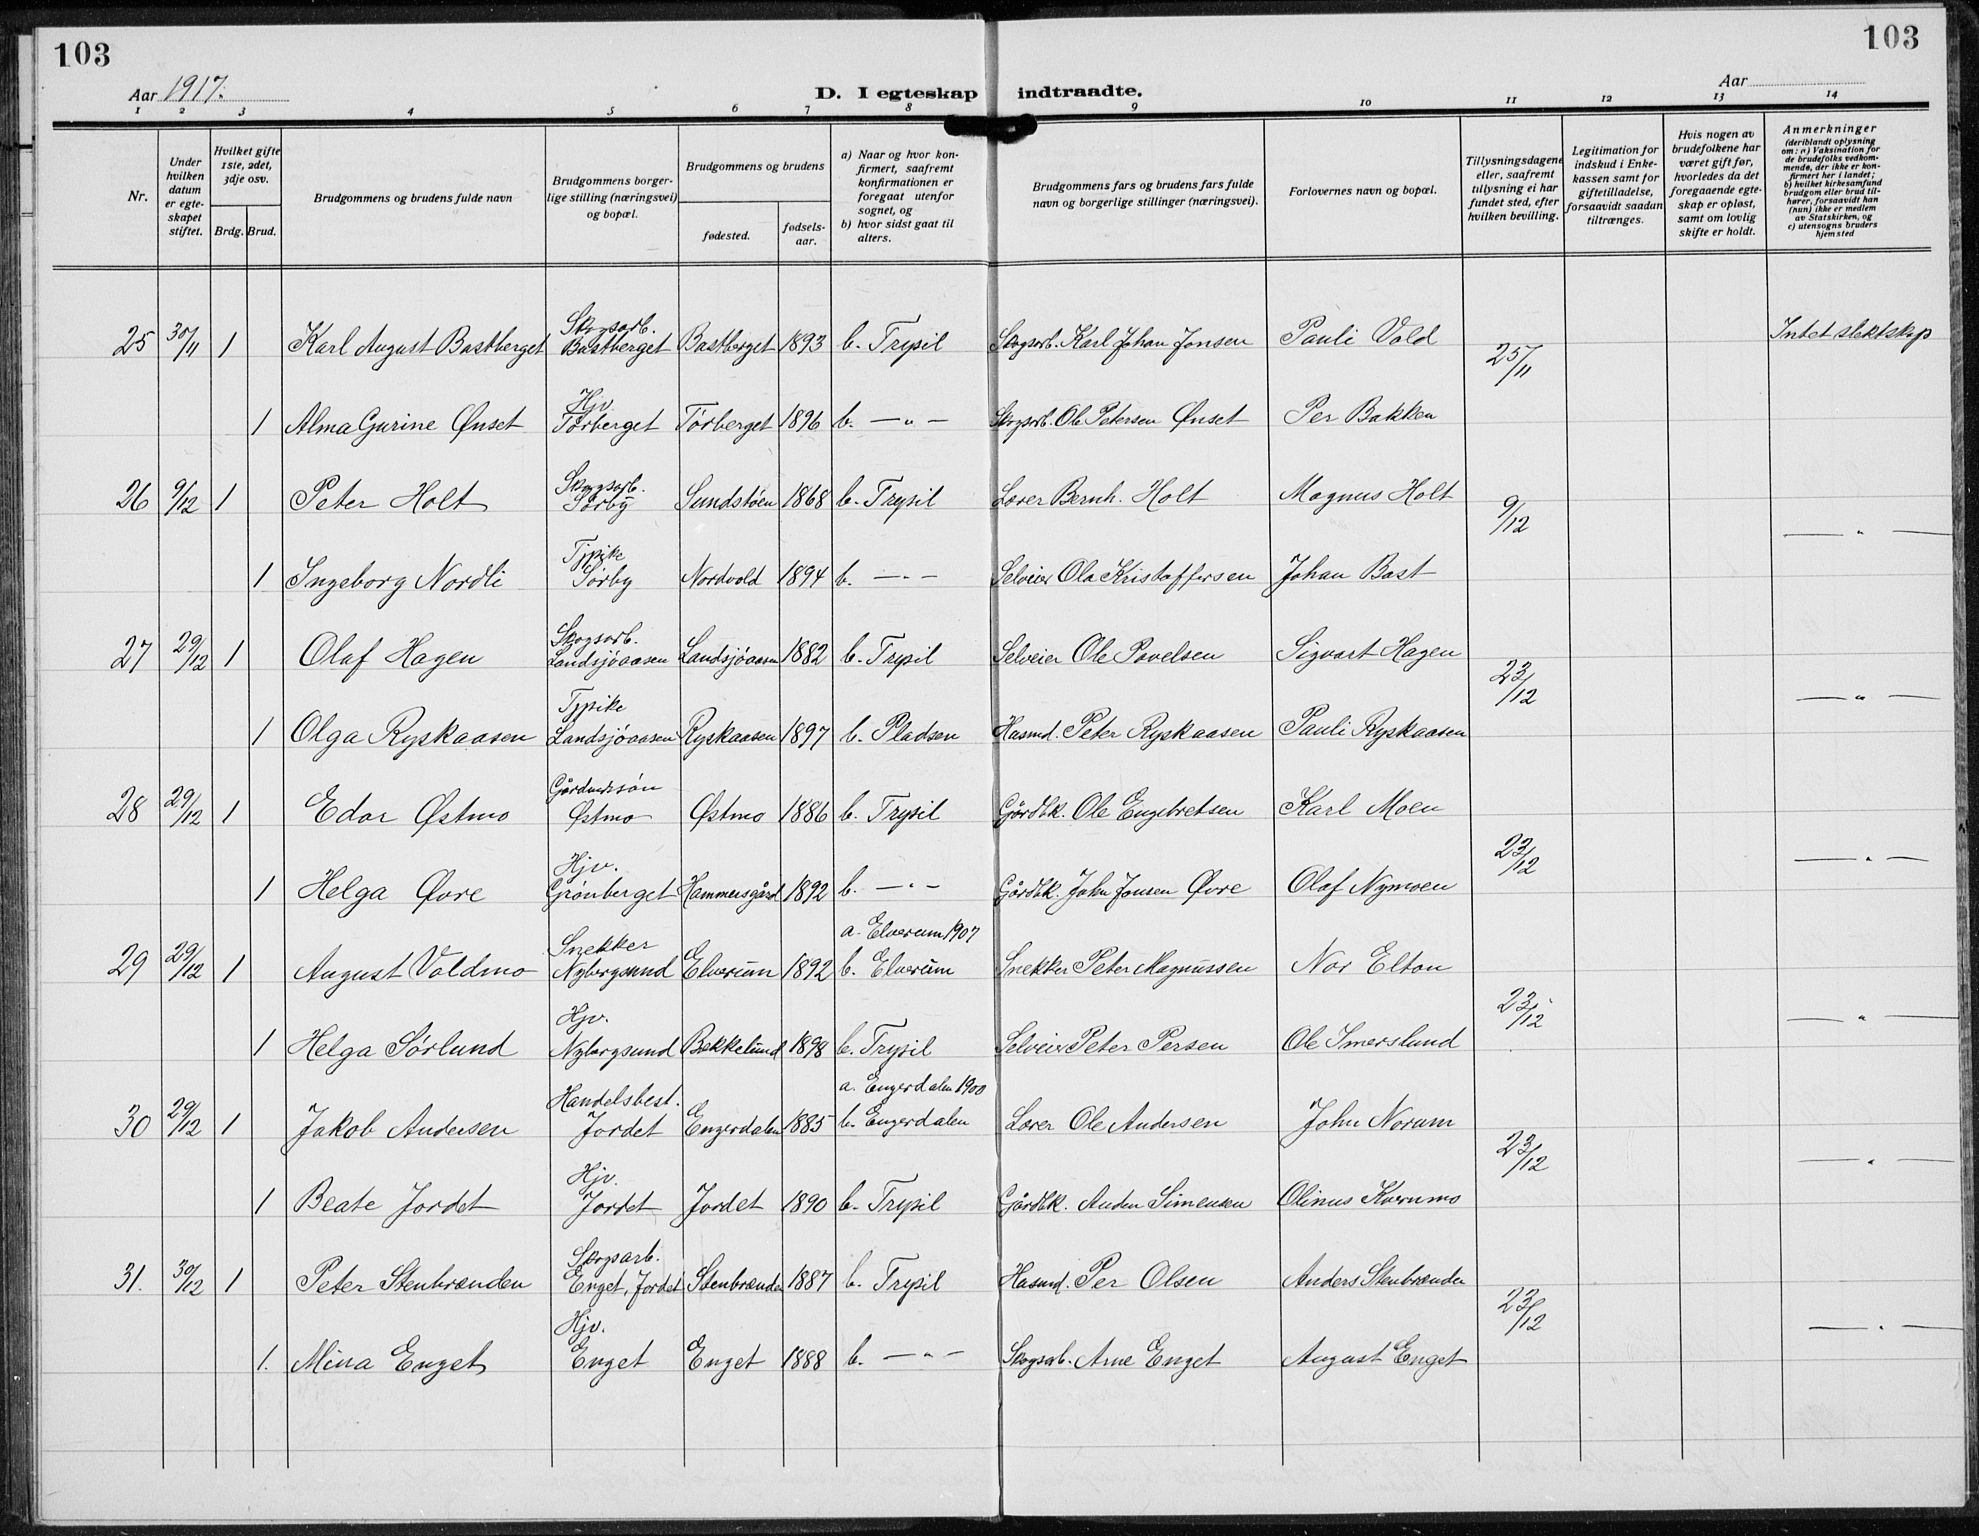 103
103
Aar 1917.
D. I egteskap indtraadte.
Aar
1 2 3 4 5 6 7 8 9 10 11 12 13 14
Nr.
Under hvilken datum er egteskapet stiftet.
Hvilket gifte 1ste, 2det, 3dje osv.
Brdg. Brud.
Brudgommens og brudens fulde navn
Brudgommens borgerlige stilling (næringsvei) og bopæl.
Brudgommens og brudens
fødested.
fødselsaar.
a) Naar og hvor konfirmert, saafremt konfirmationen er foregaat utenfor sognet, og
b) hvor sidst gaat til alters.
Brudgommens fars og brudens fars fulde navn og borgerlige stillinger (næringsvei).
Forlovernes navn og bopæl.
Tillysningsdagene eller, saafremt tillysning ei har fundet sted, efter hvilken bevilling.
Legitimation for indskud i Enkekassen samt for giftetilladelse, forsaavidt saadan tiltrænges.
Hvis nogen av brudefolkene har været gift før, hvorledes da det foregaaende egteskap er opløst, samt om lovlig skifte er holdt.
Anmerkninger (deriblandt oplysning om: a) Vaksination for de brudefolks vedkommende, der ikke er konfirmert her i landet; b) hvilket kirkesamfund brudgom eller brud tilhører, forsaavidt han (hun) ikke er medlem av Statskirken, og c) utensogns bruders hjemsted
25 30/11 1 Karl August Bastberget Skogsarb. Bastberget Bastberget 1893 b. Trysil Skogsarb. Karl Johan Jonsen Pauli Vold 25/11 Intet slektskap
1 Alma Gurine Ønset Hjv. Tørberget Tørberget 1896 b. — " — Skogsarb. Ole Petersen Ønset Per Bakken
26 9/12 1 Peter Holt Skogsarb. Sørby Sundstøen 1868 b. Trysil Lærer Bernh. Holt Magnus Holt 9/12 — " —
1 Ingeborg Nordli Tjpike Sørby Nordvold 1894 b. — " — Selveier Ola Kristoffersen Johan Bast
27 29/12 1 Olaf Hagen Skogsarb. Landsjøaasen Landsjøaasen 1882 b. Trysil Selveier Ole Pavelsen Sigvart Hagen 23/12 — " —
1 Olga Ryskaasen Tjpike Landsjøaasen Ryskaasen 1897 b. Pladsen Husmd. Peter Ryskaasen Pauli Ryskaasen
28 29/12 1 Edor Østmo Gårdmdssøn Østmo Østmo 1886 b. Trysil Gårdbk. Ole Engebretsen Karl Moen 23/12 — " —
1 Helga Øvre Hjv. Grønberget Hammersgård 1892 b. — " — Gårdbk. John Jonsen Øvre Olaf Nymoen
29 29/12 1 August Voldmo Snekker Nybergsund Elverum 1892 a. Elverum 1907 b. Elverum Snekker Peter Magnussen Nor Elton 23/12 — " —
1 Helga Sørlund Hjv. Nybergsund Bekkelund 1898 b. Trysil Selveier Peter Persen Ole Smerslund
30 29/12 1 Jakob Andersen Handelsbest. Jordet Engerdalen 1885 a. Engerdalen 1900 b. Engerdalen Lærer Ole Andersen John Norum 23/12 — " —
1 Beate Jordet Hjv. Jordet Jordet 1890 b. Trysil Gårdbk. Anders Simensen Olinus Kvernmo
31. 30/12 1 Peter Stenbrænden Skogsarb. Enget, Jordet Stenbrænden 1887 b. Trysil Husmd. Per Olsen Anders Stenbrænden 23/12 — " —
1. Mina Enget Hjv. Enget Enget 1888 b. — " — Skogsarb. Arne Enget August Enget